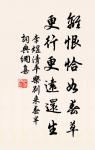 離恨恰如春草
更行更遠還生
李煜清平樂別來春半
詞典網集